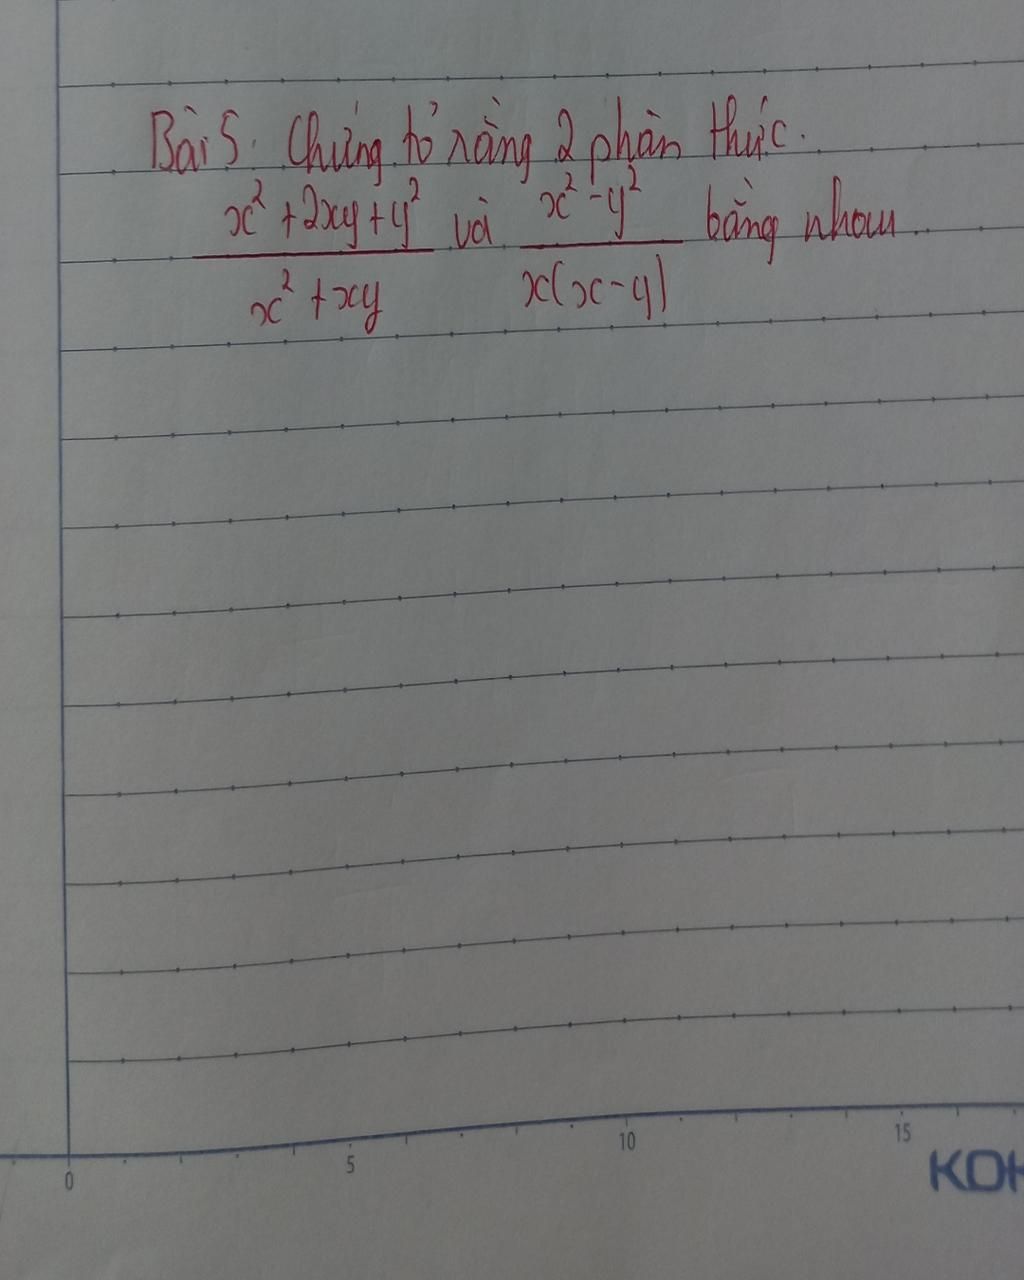 Bài 5. Chứng tỏ rằng 2 phân thức.
x² + 2xy + y² / x² + xy và x² - y² / x(x - y) bằng nhau..
0 5 10 15
KOK